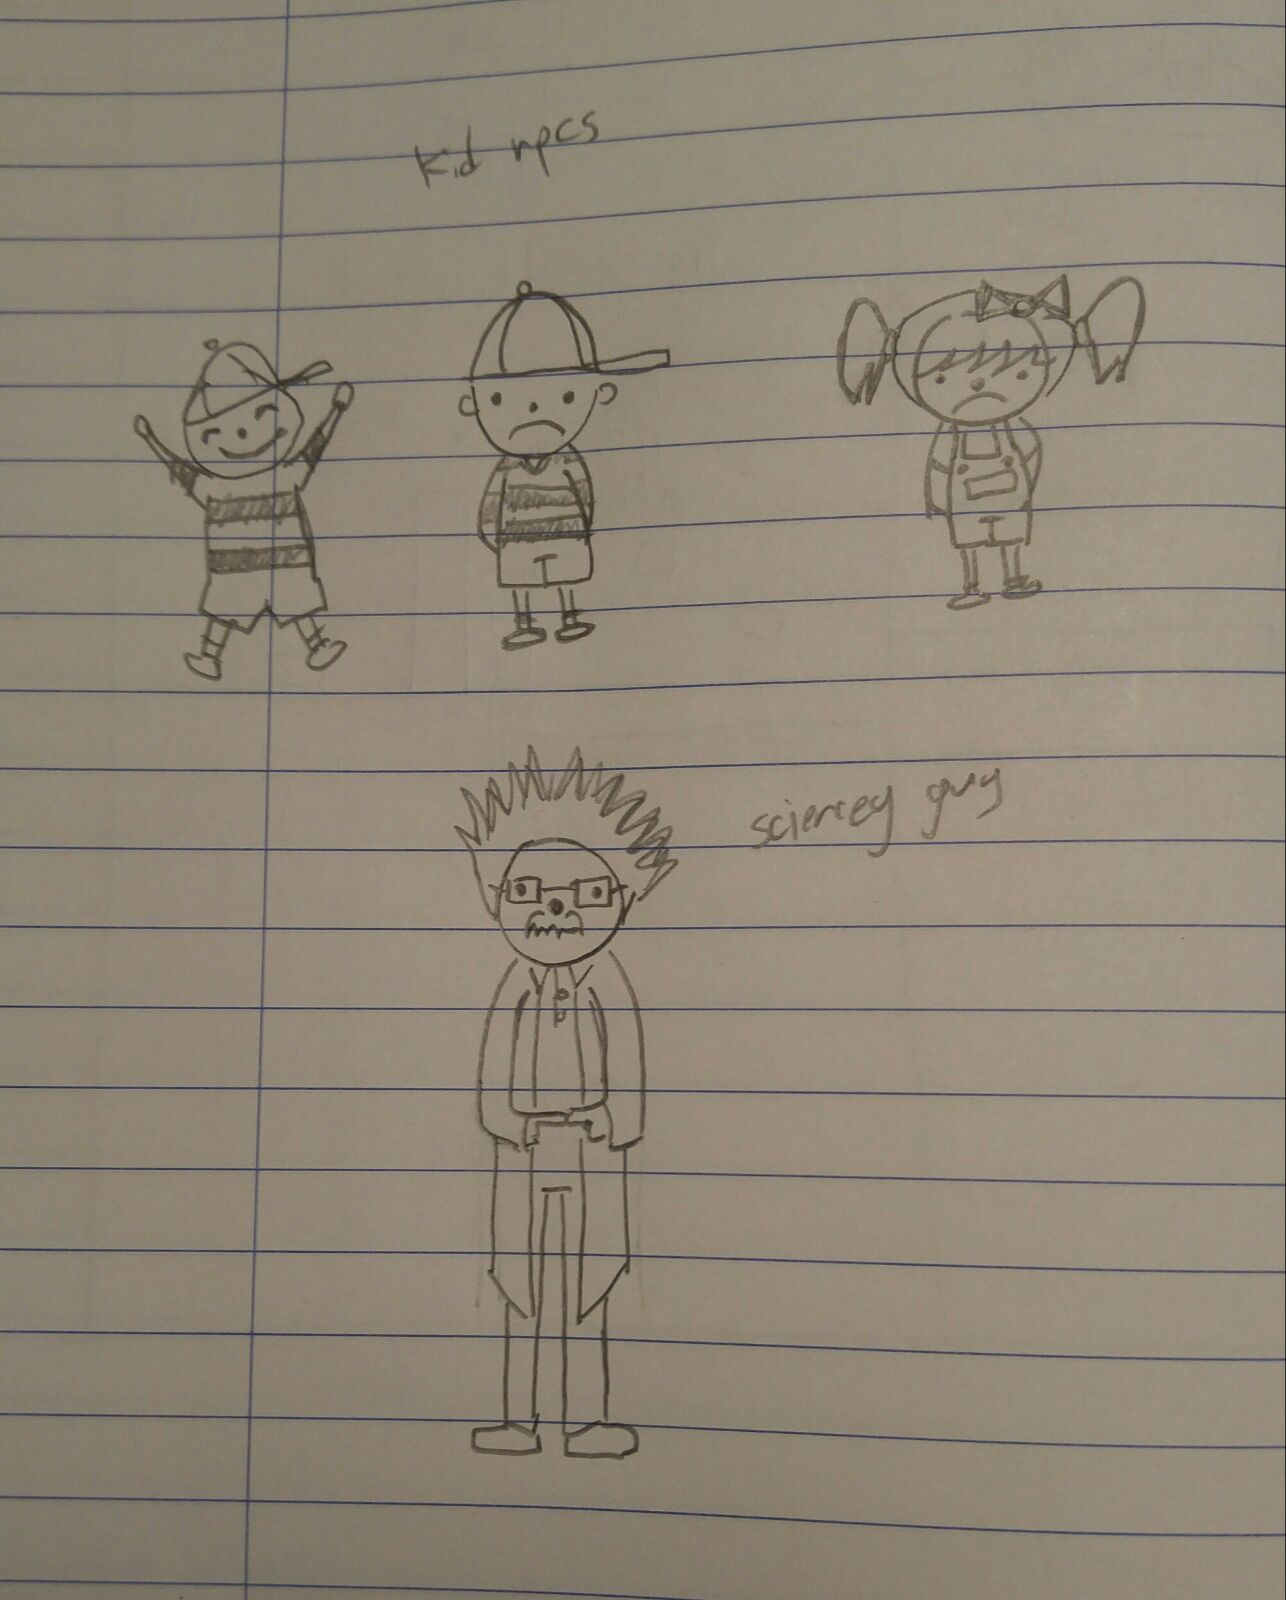 Kid npcs
sciencey guy